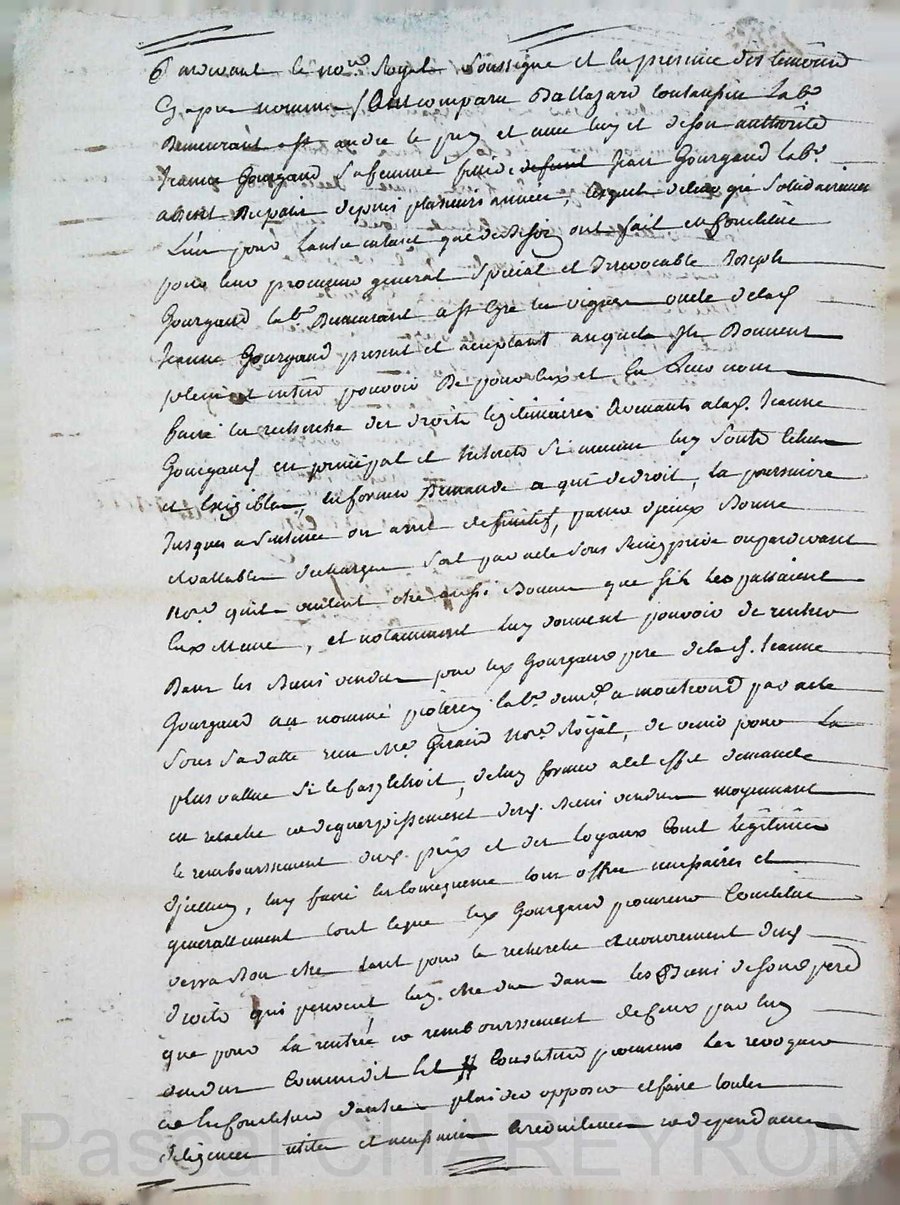 Pardevant le no.re Royal Soussigné et en presence des temoins
Cy apres nommés, Ont comparu Baltazard Coulaupin lab.r
Demeurant a st andré le puy et avec luy et de son authorité
Jeanne Gourgaud sa femme fille de defunt Jean Gourgaud lab.r
absent du pais depuis plusieurs années, lesquels de leur gré solidairement
L'un pour l'autre ont fait et constitué
pour leur procureur general Special et Irrevocable Joseph
Gourgaud lab.r Demeurant a st Cyre les vignes oncle de lad.
Jeanne Gourgaud present et acceptant auquel Ils Donnent
plein et entier pouvoir De pour eux et En Leur nom
faire la recherche des droits legitimaires advenants a lad. Jeanne
Gourgaud en principal et Interets si aucun luy sont echus
et Exigibles, en former Demande a qui de droit, la poursuivre
Jusques a Sentence ou arret definitif, passer d'jceux Bonne
et vallable decharge soit par acte sous seing privé ou pardevant
no.re qu'ils veulent etre aussi Bonne que s'ils les passaient
Eux meme, et notamment luy donnent pouvoir de rentrer
Dans les Biens vendus par led. Gourgaud pere de lad. Jeanne
Gourgaud au nommé lab.r dem.t a montrond par acte
sous sa datte reçu M.e Giraud no.re Royal, de venir pour la
plus vallue si le cas y echoit, de luy former a cet effet demande
en relache et deguerpissement desd. Biens vendus moyennant
le remboursement dud. prix et des loyaux Cout legitimes
d'jcelluy, luy faire en consequence tous offres necessaires et
generallement tout ce que led. Gourgaud procureur Constitué
verra Bon etre tant pour la recherche et recouvrement desd.
droits qui peuvent luy etre dus dans les Biens de son d. pere
que pour la rentrée et remboursement de ceux par luy
vendus Comme dit est, Constituer procureurs les revoquer
et en constituer d'autres plaider opposer et faire toutes
diligences utiles et necessaires circonstances et dependances
Pascal CHAREYRON